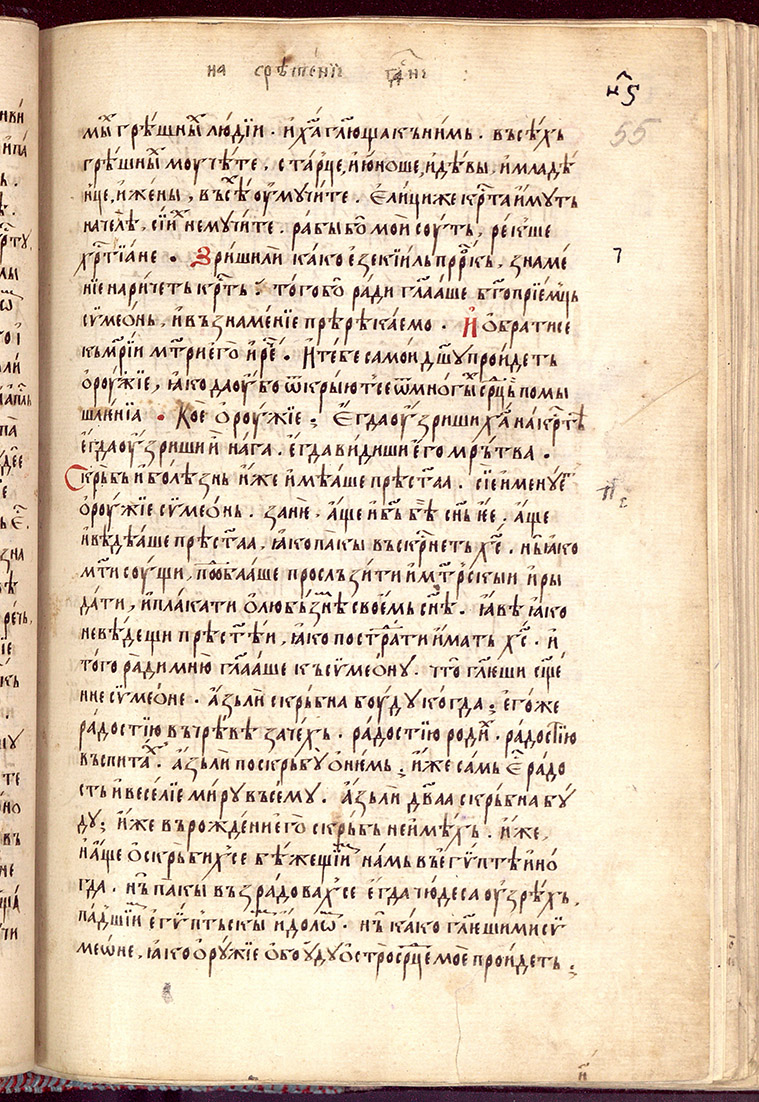 на срѣтенїе гд҇не
н҃ѕ
55
мы̏ грѣ́шны̏ лю́дїи · и҆ х҃а гл҃юща къ ни́мь · въсѣ́хъ
грѣ́шны̏ моучѣ́те , ста́рце , и҆ ю́ноше , и҆ дѣ́вы , и҆ младѣ́
нце , и҆ жены̀ , въсѣ̏ оу҆мучи́те · Е҆ли́ци же кр҇та и҆́муть
начелѣ̀ , сїи̏ не мучи́те · рабы бо̀ мои̏ соуть , ре́кше
хр҇тїа́не · Зри́ши ли ка́ко е҆зекїи́ль пр҇ркъ , зна́ме
нїе нари́четь кр҇ть · того́ бо ра́ди гл҃а́аше б҃гопрїе́мць
сѷмео́нь , и҆ въ зна́менїе прѣрѣка́емо · И҆ обрати́се
къ мр҃їи мт҃ри е҆го̀ и҆ ре҇ · И҆ тебѣ самои д҃шу про́йдеть
ѻ҆роу́жїе , ꙗ҆́ко да оу҆бо ѿкры́ютсе ѿ мно́гы̏ ср҇дць помы
шле́нїа · Кое̏ ѻ҆роу́жїе ; Е҆гда оу҆́зриши х҃а на кр҇тѣ
е҆гда оу҆́зриши и҆̀ на́га · е҆гда ви́диши е҆го̀ мр́ътва ·
Скръ́бь и҆ болѣ́знь и҆́же и҆мѣ́аше прѣст҃аа · сїе и҆менуе̏
ѻ҆роу́жїе сѷмео́нь · зане̏ , а҆́ще и҆ б҃ь бѣ̏ сн҃ь е҆е̏ · а҆́ще
и҆ вѣ́дѣаше прѣст҃аа , ꙗ҆́ко па́кы въскр҇неть х҇с · нь̏ ꙗ҆́ко
мт҃и соу́щи , подоба́аше прослъзи́ти и҆ мт҃рскыи и҆ ры
да́ти , и҆ пла́кати ѻ҆ любь́знѣ своѐмь сн҃ѣ · ꙗ҆́вѣ ꙗ҆́ко
не вѣ́дещи прѣст҃ѣи , ꙗ҆́ко постра҇ти и҆́мать х҇с · и҆
того̀ ра́ди мню̀ гл҃а́аше къ сѷмео́ну · что̀ гл҃е́ши сщ҃е́
ниe сѷмео́не · а҆́зь ли скръ́бна боу́ду когда̀ ; е҆го́же
ра́достїю въ чрѣ́вѣ заче́хъ · ра́достїю роди̏х · ра́достїю
въспита̏х · а҆́зь ли поскръбу̀ ѻ҆ ни́мь ; и҆́же са́мь е҇ ра́до
сть и҆ весе́лїе ми́ру въсе́му · а҆́зь ли дв҃аа скръ́бна бу́
ду ; и҆́же въ рожде́ни е҆го̀ скръ́бъ не и҆мѣ́хъ · и҆́же ,
и҆ а҆́ще ѻ҆скръби́хсе бѣжещїи̏м на́мь въ е҆гѵ́птѣ и҆но
гда̀ · нь̏ па́кы възра́довахсе е҆гда̀ чю́деса оу҆зрѣ́хъ ,
па́дшїи̏м е҆гѵ́птьскы̏м и҆́долѡ̏м · нь̏ ка́ко гл҃е́ши ми сѷ
меѡ́не , ꙗ҆́ко ѻ҆ру́жїе ѻ҆боу́ду ѻ҆стро ср҇дце моѐ про́йдеть ;